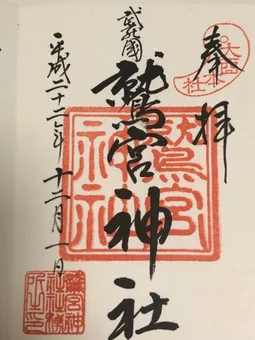 奉拝
武蔵國
鷲宮神社
平成二十二年十二月一日
鷲宮
神社
鷲宮神
社社務
所之印